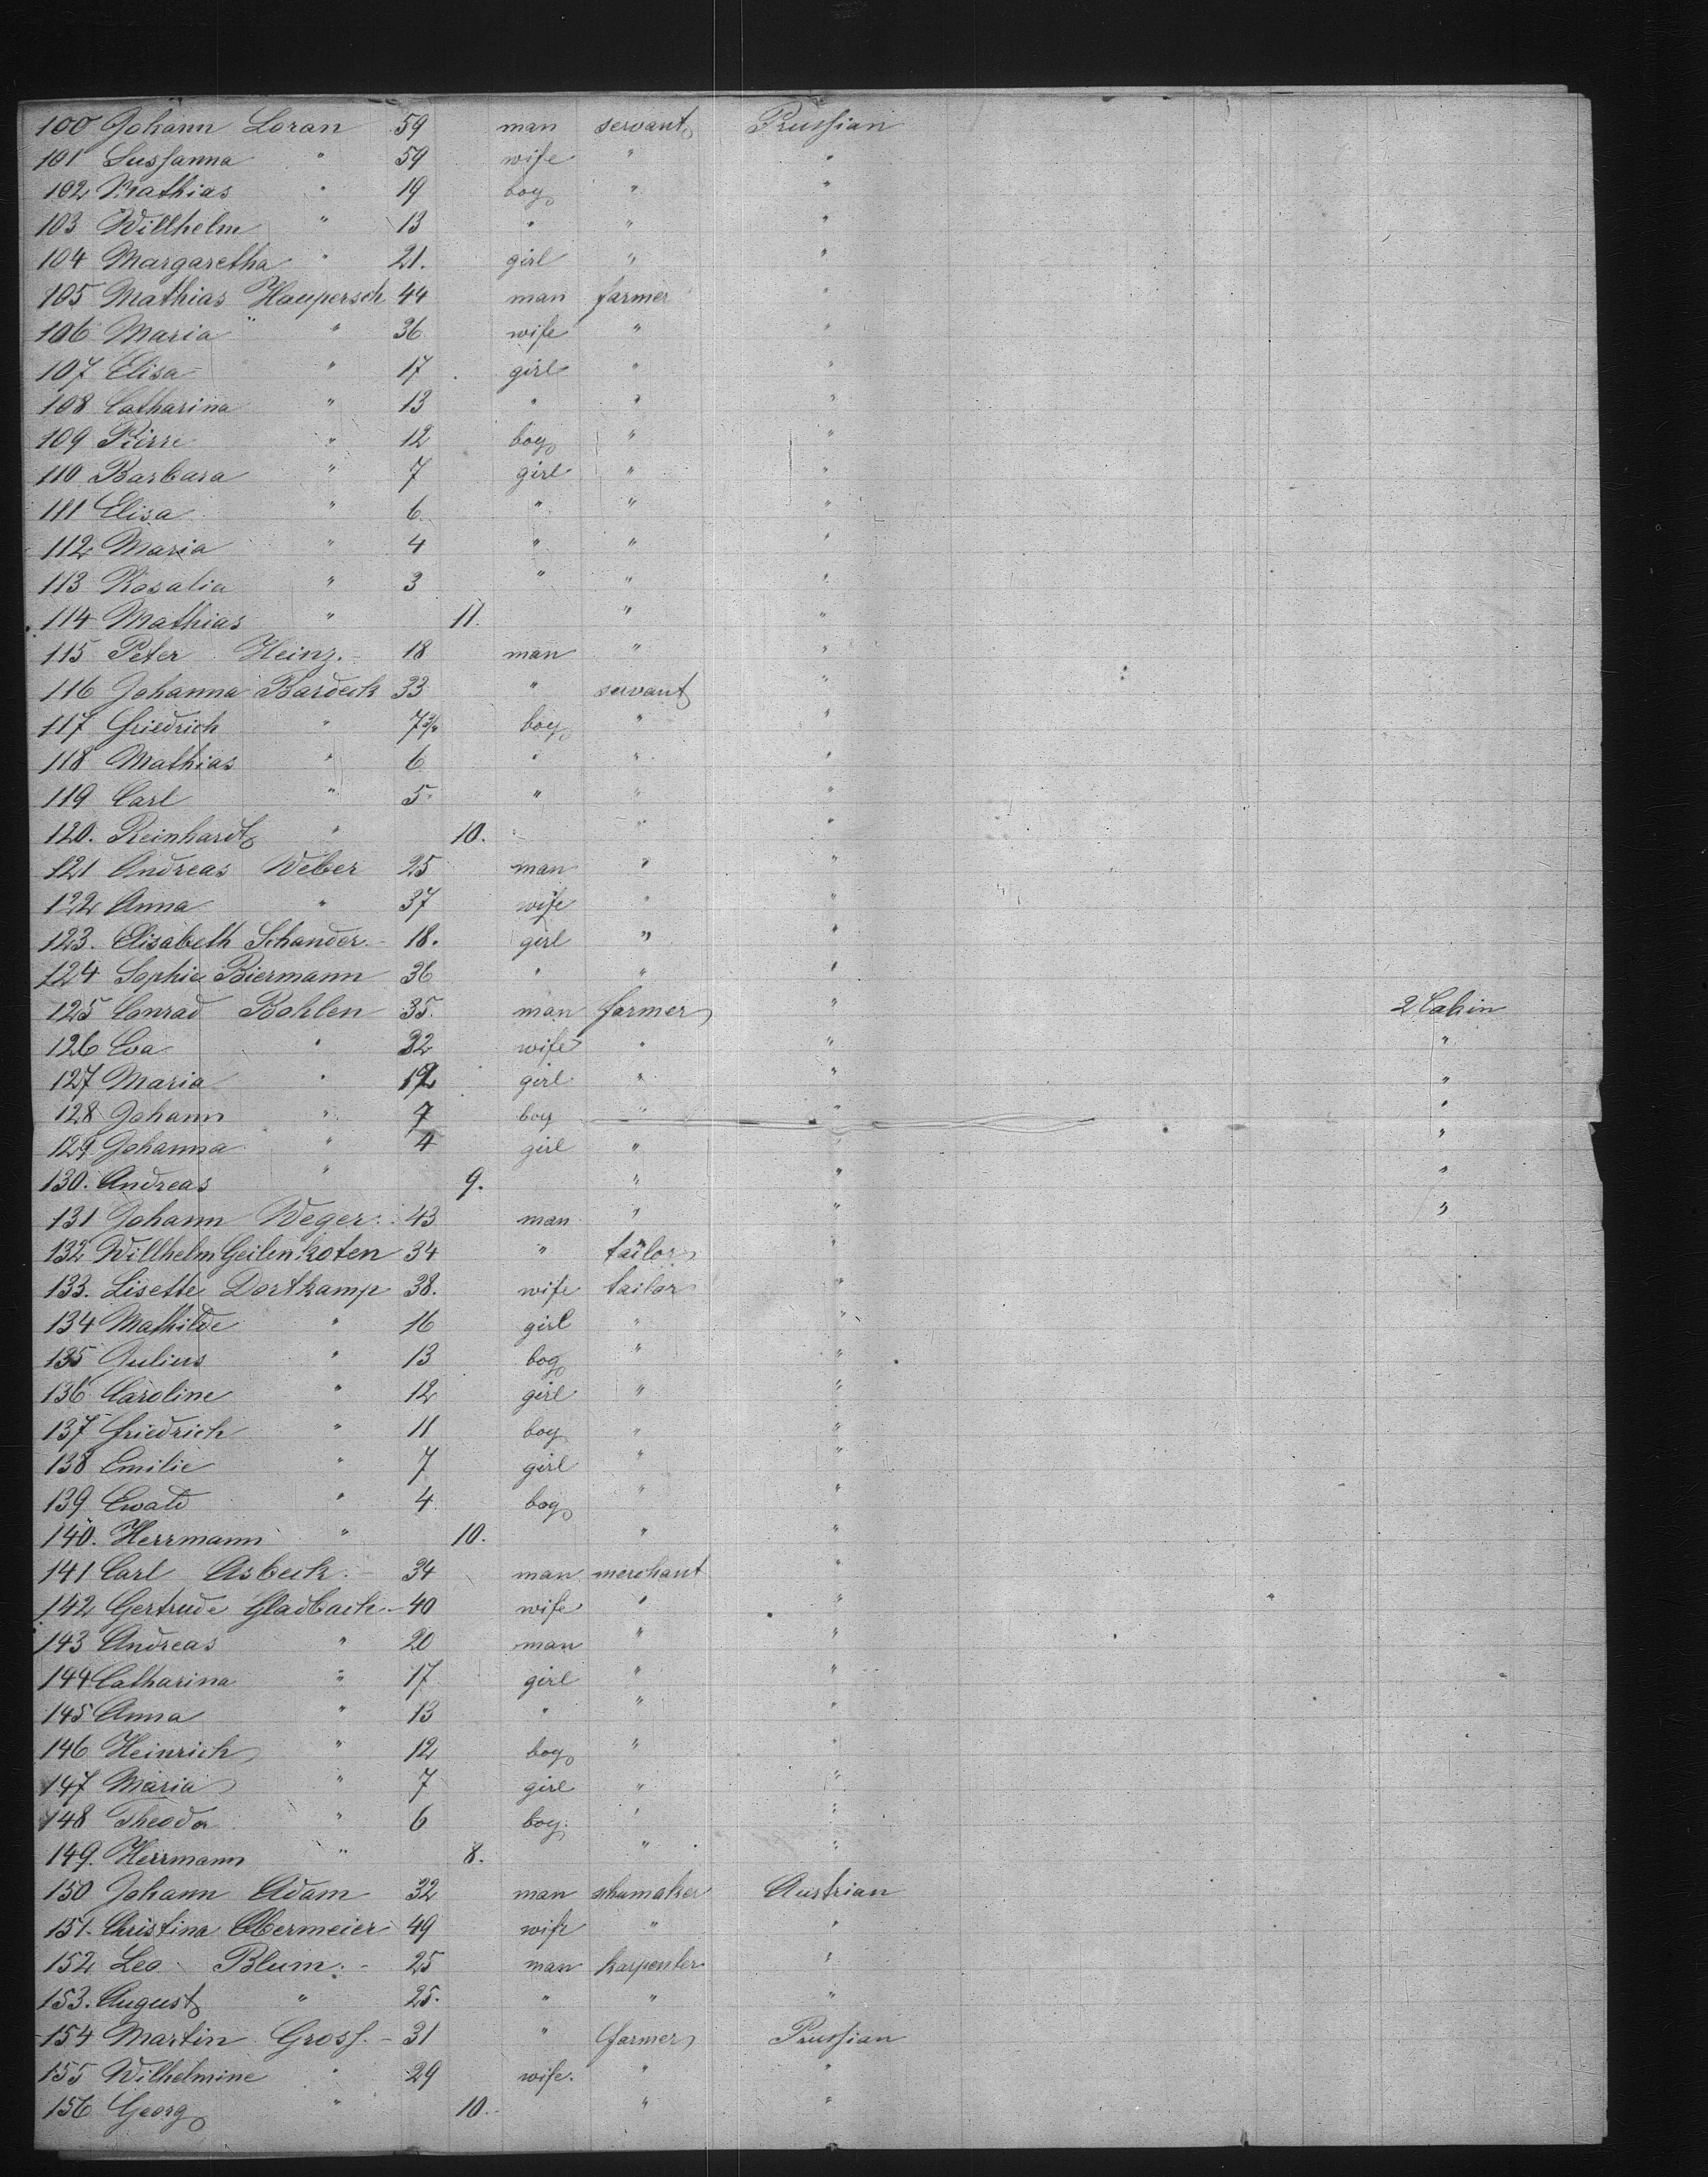 100 Johann Loran 59 man servant Prussian
101 Sussanna " 59 wife " "
102 Mathias " 19 boy " "
103 Willhelm " 13 " " "
104 Margaretha " 21. girl " "
105 Mathias Haupersch 44 man farmer "
106 Maria " 36 wife " "
107 Elisa " 17 girl " "
108 Catharina " 13 " " "
109 Pierre " 12 boy " "
110 Barbara " 7 girl " "
111 Elisa " 6 " " "
112 Maria " 4 " " "
113 Rosalia " 3 " " "
114 Mathias " 11. " "
115 Peter Heinz. 18 man " "
116 Johanna Bardeck 33 " servant "
117 Friedrich " 7 boy " "
118 Mathias " 6 " " "
119 Carl " 5 " " "
120. Reinhardt " 10. " "
121 Andreas Weber 25 man " "
122 Anna " 37 wife " "
123. Elisabeth Schander 18. girl " "
124 Sophie Biermann 36 " " "
125 Conrad Bohlen 35. man farmer " 2 Cabin
126 Eva " 32 wife " " "
127 Maria " 12 girl " " "
128 Johann " 7 boy " " "
129 Johanna " 4 girl " " "
130. Andreas " 9. " " "
131 Johann Weger. 43 man " " "
132 Willhelm Geilenkoten 34 " tailor "
133. Lisette Dortkamp 38. wife tailor "
134 Mathilde " 16 girl " "
135 Julius " 13 boy " "
136 Caroline " 12 girl " "
137 Friedrich " 11 boy " "
138 Emilie " 7 girl " "
139 Ewald " 4 boy " "
140. Herrmann " 10. " "
141 Carl Asbeck. 34 man merchant "
142 Gertrude Gladbach 40 wife " "
143 Andreas " 20 man " "
144 Catharina " 17 girl " "
145 Anna " 13 " " "
146 Heinrich " 12 boy " "
147 Maria " 7 girl " "
148 Theodor " 6 boy. " "
149. Herrmann " 8. " "
150 Johann Adam 32 man schumaker Austrian
151. Christina Obermeier 49 wife " "
152 Leo Blum. 25 man karpenter "
153. August " 25. " " "
154 Martin Gross. 31 " farmer Prussian
155 Wilhelmine " 29 wife. " "
156 Georg " 10. " "